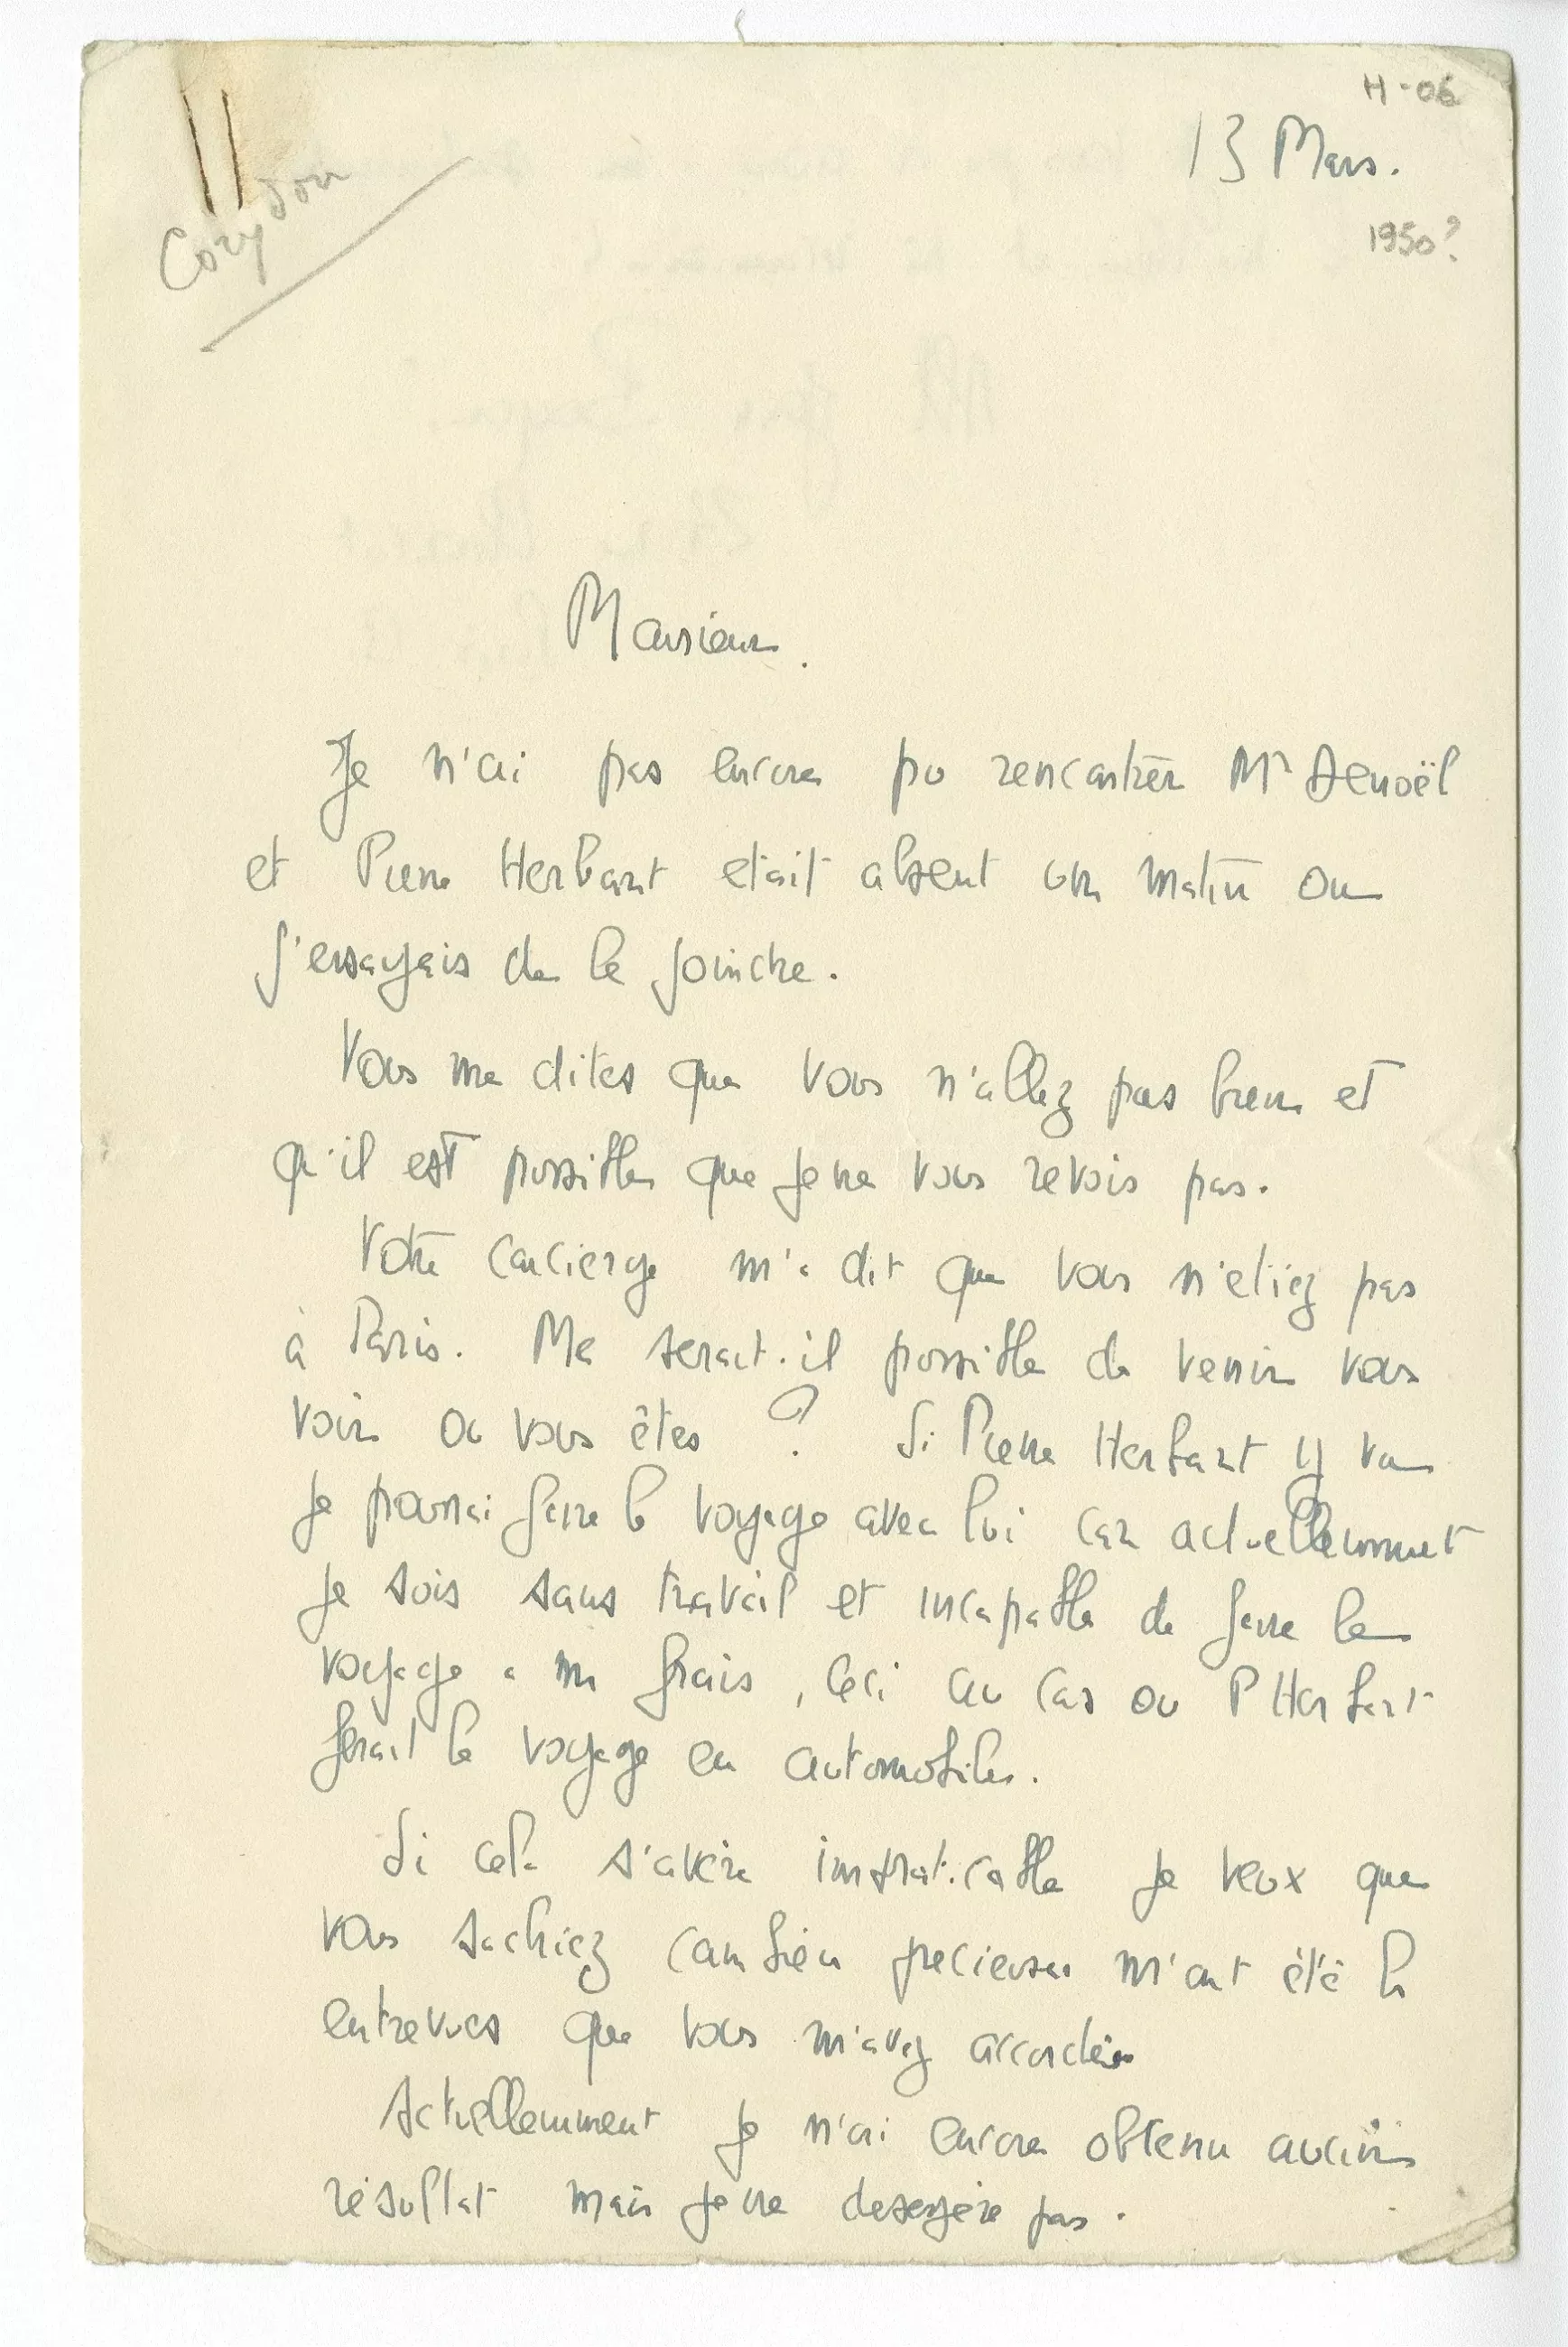 H-06
13 Mars.
Corydon
1950?
Monsieur.
Je n'ai pas encore pu rencontrer Mr Denoël
et Pierre Herbart etait absent un matin ou
j'essayais de le joindre.
Vous me dites que vous n'allez pas bien et
qu'il est possible que je ne vous revois pas.
Votre concierge m'a dit que vous n'etiez pas
à Paris. Me serait-il possible de venir vous
voir ou vous êtes ? Si Pierre Herbart y va
je pourrai faire le voyage avec lui car actuellemment
je suis sans travail et incapable de faire le
voyage a mes frais, ceci au cas ou P Herbart
ferait le voyage en automobile.
Si cela s'avère impraticable je veux que
vous sachiez combien precieuses m'ont été les
entrevues que vous m'avez accordées
Actuellemment je n'ai encore obtenu aucun
résultat mais je ne desespère pas.